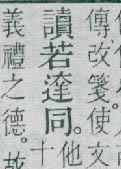 傳改箋。使文
讀若達同。
他
十
義禮之德。故